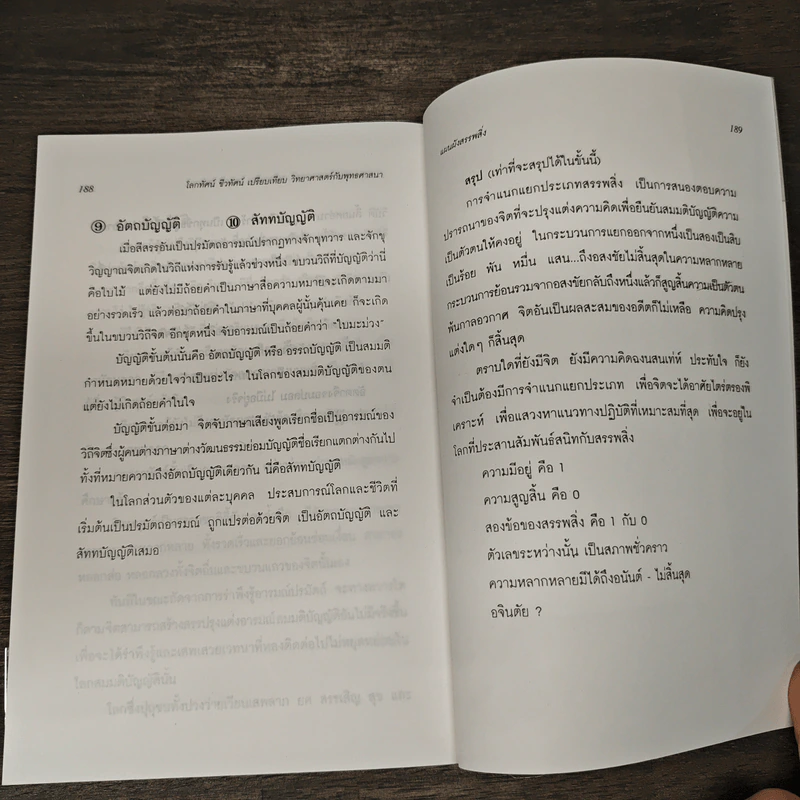 188
โลกทัศน์ ชีวทัศน์ เปรียบเทียบ วิทยาศาสตร์กับพุทธศาสนา
⑨ อัตถบัญญัติ ⑩ สัททบัญญัติ
เมื่อสีสรรอันเป็นปรมัตถอารมณ์ปรากฏทางจักขุทวาร และจักขุ
วิญญาณจิตเกิดในวิถีแห่งการรับรู้แล้วช่วงหนึ่ง ขบวนวิถีที่บัญญัติว่านี่
คือใบไม้ แต่ยังไม่มีถ้อยคำเป็นภาษาสื่อความหมายจะเกิดตามมา
อย่างรวดเร็ว แล้วต่อมาถ้อยคำในภาษาที่บุคคลผู้นั้นคุ้นเคย ก็จะเกิด
ขึ้นในขบวนวิถีจิต อีกชุดหนึ่ง จับอารมณ์เป็นถ้อยคำว่า "ใบมะม่วง"
บัญญัติขั้นต้นนั้นคือ อัตถบัญญัติ หรือ อรรถบัญญัติ เป็นสมมติ
กำหนดหมายด้วยใจว่าเป็นอะไร ในโลกของสมมติบัญญัติของตน
แต่ยังไม่เกิดถ้อยคำในใจ
บัญญัติขั้นต่อมา จิตจับภาษาเสียงพูดเรียกชื่อเป็นอารมณ์ของ
วิถีจิตซึ่งผู้คนต่างภาษาต่างวัฒนธรรมย่อมบัญญัติชื่อเรียกแตกต่างกันไป
ทั้งที่หมายความถึงอัตถบัญญัติเดียวกัน นี่คือสัททบัญญัติ
ในโลกส่วนตัวของแต่ละบุคคล ประสบการณ์โลกและชีวิตที่
เริ่มต้นเป็นปรมัตถอารมณ์ ถูกแปรต่อด้วยจิต เป็นอัตถบัญญัติ และ
สัททบัญญัติเสมอ
แผนผังสรรพสิ่ง
189
สรุป (เท่าที่จะสรุปได้ในขั้นนี้)
การจำแนกแยกประเภทสรรพสิ่ง เป็นการสนองตอบความ
ปรารถนาของจิตที่จะปรุงแต่งความคิดเพื่อยืนยันสมมติบัญญัติความ
เป็นตัวตนให้คงอยู่ ในกระบวนการแยกออกจากหนึ่งเป็นสองเป็นสิบ
เป็นร้อย พัน หมื่น แสน...ถึงอสงขัยไม่สิ้นสุดในความหลากหลาย
กระบวนการย้อนรวมจากอสงขัยกลับถึงหนึ่งแล้วก็สูญสิ้นความเป็นตัวตน
พ้นกาลอวกาศ จิตอันเป็นผลสะสมของอดีตก็ไม่เหลือ ความคิดปรุง
แต่งใดๆ ก็สิ้นสุด
ตราบใดที่ยังมีจิต ยังมีความคิดฉงนสนเท่ห์ ประทับใจ ก็ยัง
จำเป็นต้องมีการจำแนกแยกประเภท เพื่อจิตจะได้อาศัยไตร่ตรองพิ
เคราะห์ เพื่อแสวงหาแนวทางปฏิบัติที่เหมาะสมที่สุด เพื่อจะอยู่ใน
โลกที่ประสานสัมพันธ์สนิทกับสรรพสิ่ง
ความมีอยู่ คือ 1
ความสูญสิ้น คือ 0
สองข้อของสรรพสิ่ง คือ 1 กับ 0
ตัวเลขระหว่างนั้น เป็นสภาพชั่วคราว
ความหลากหลายมีได้ถึงอนันต์ - ไม่สิ้นสุด
อจินตัย ?